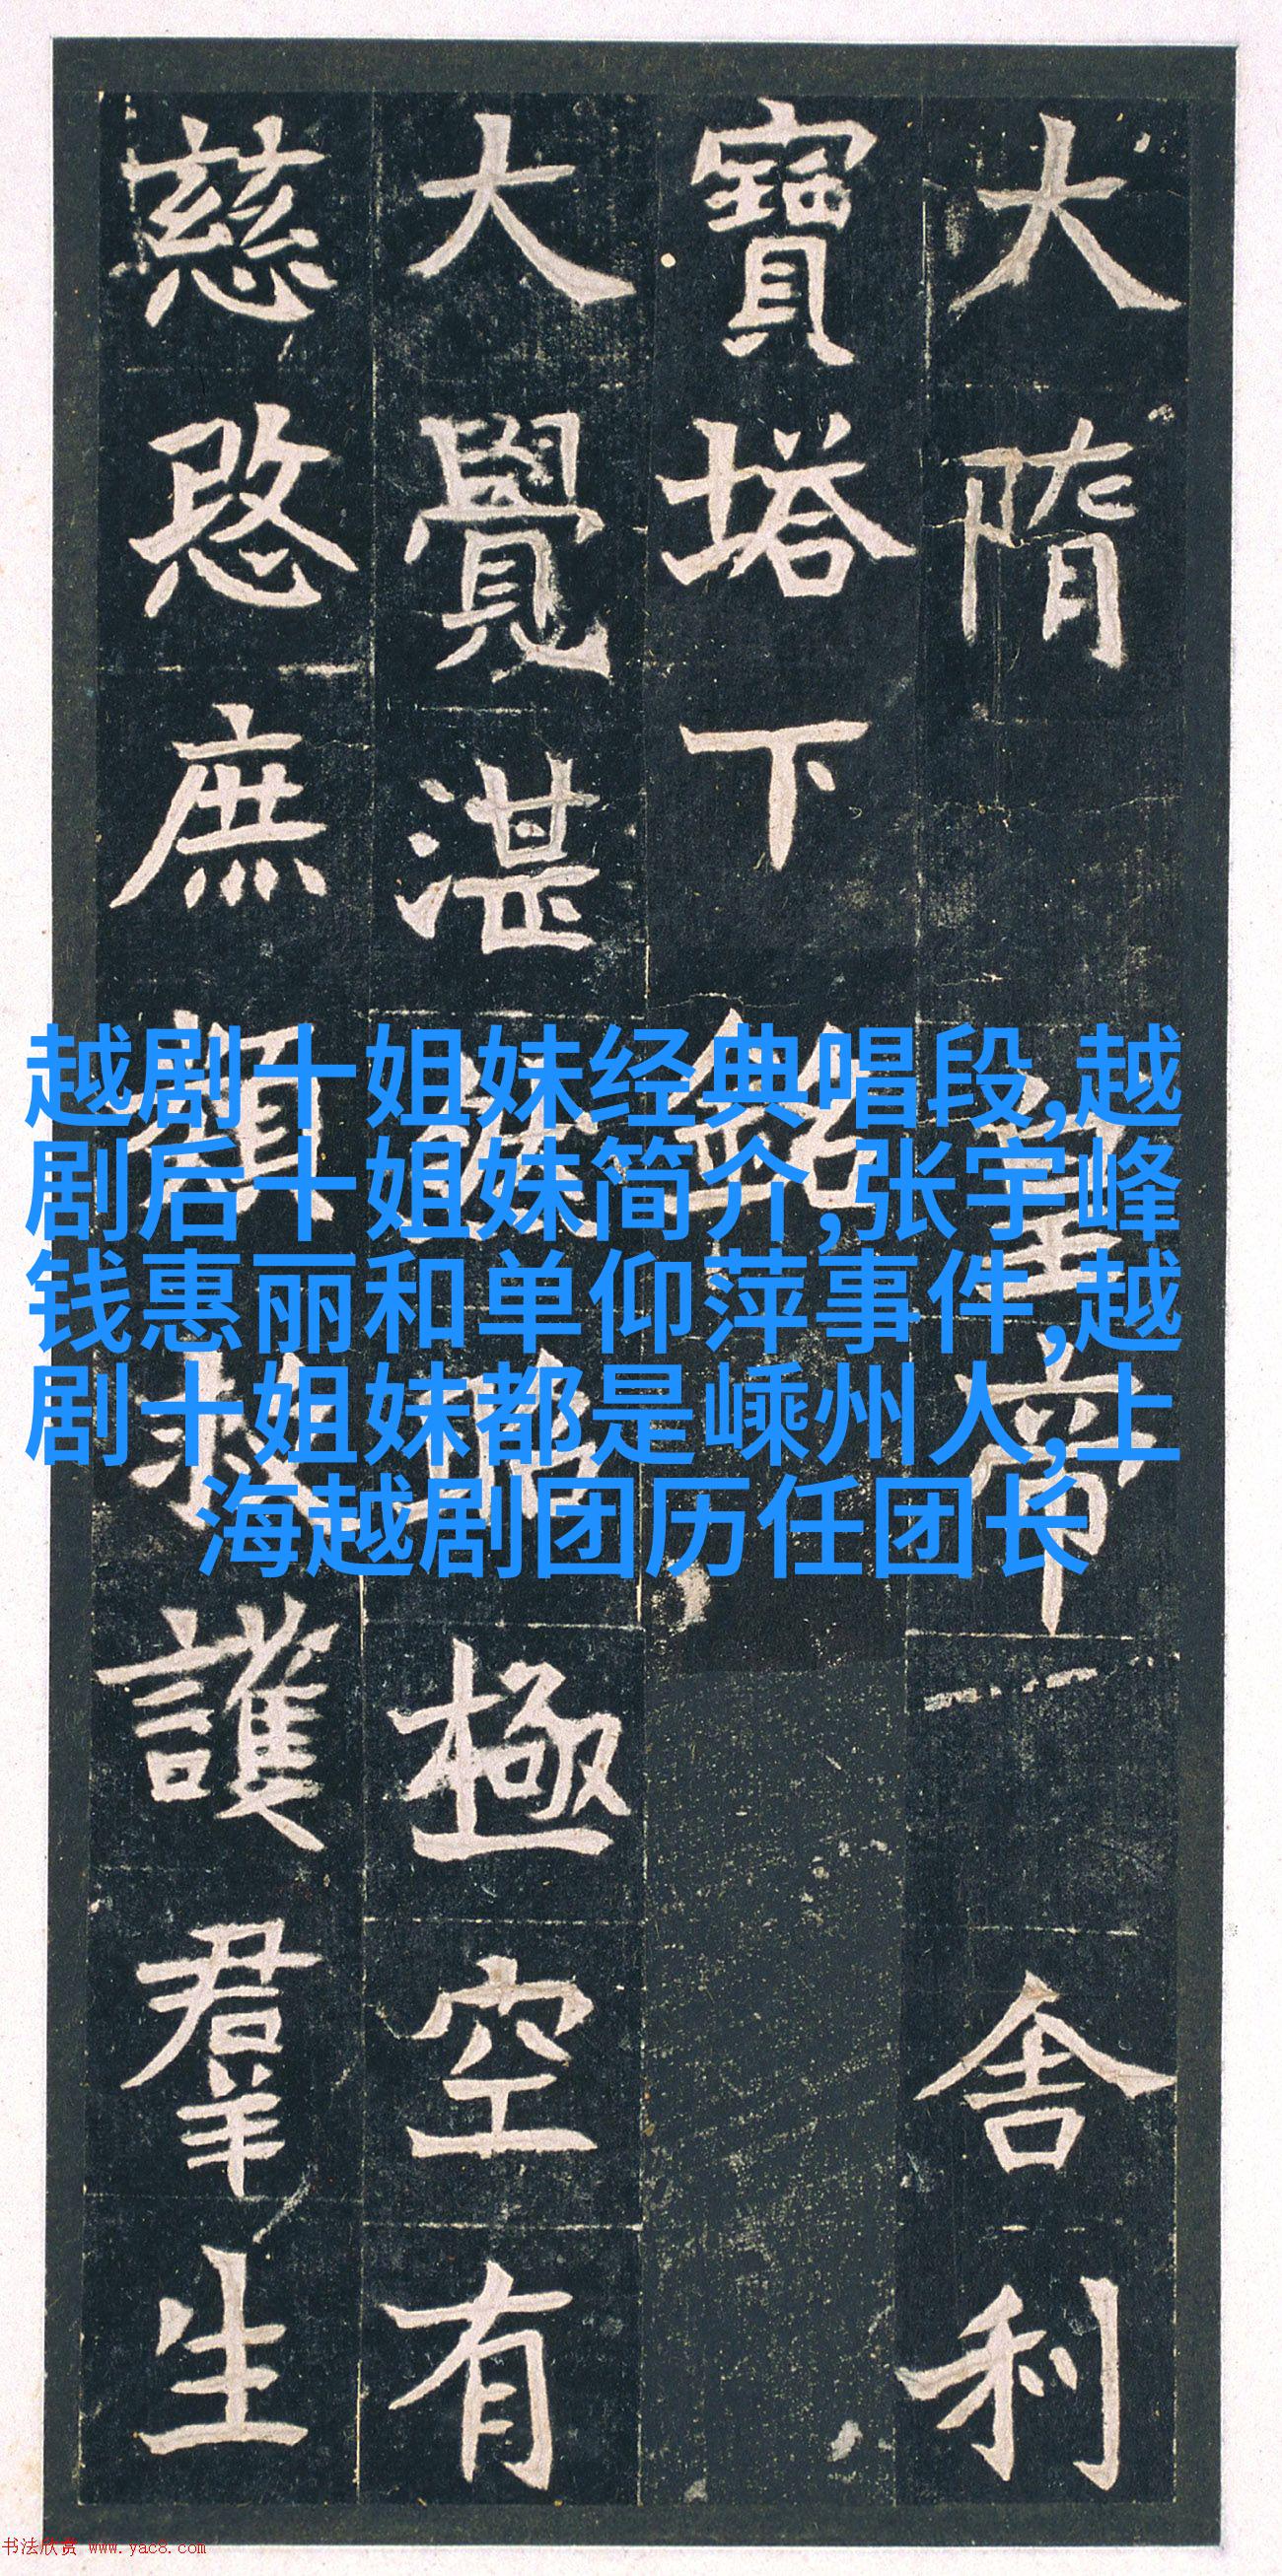 大隋皇帝舍利
寶塔下銘
大覺湛極空有
慈愍庶救護羣生
越剧十姐妹经典唱段,越
剧后十姐妹简介,张宇峰
钱惠丽和单仰萍事件,越
剧十姐妹都是嵊州人,上
海越剧团历任团长
书法欣赏 www.yac8.com